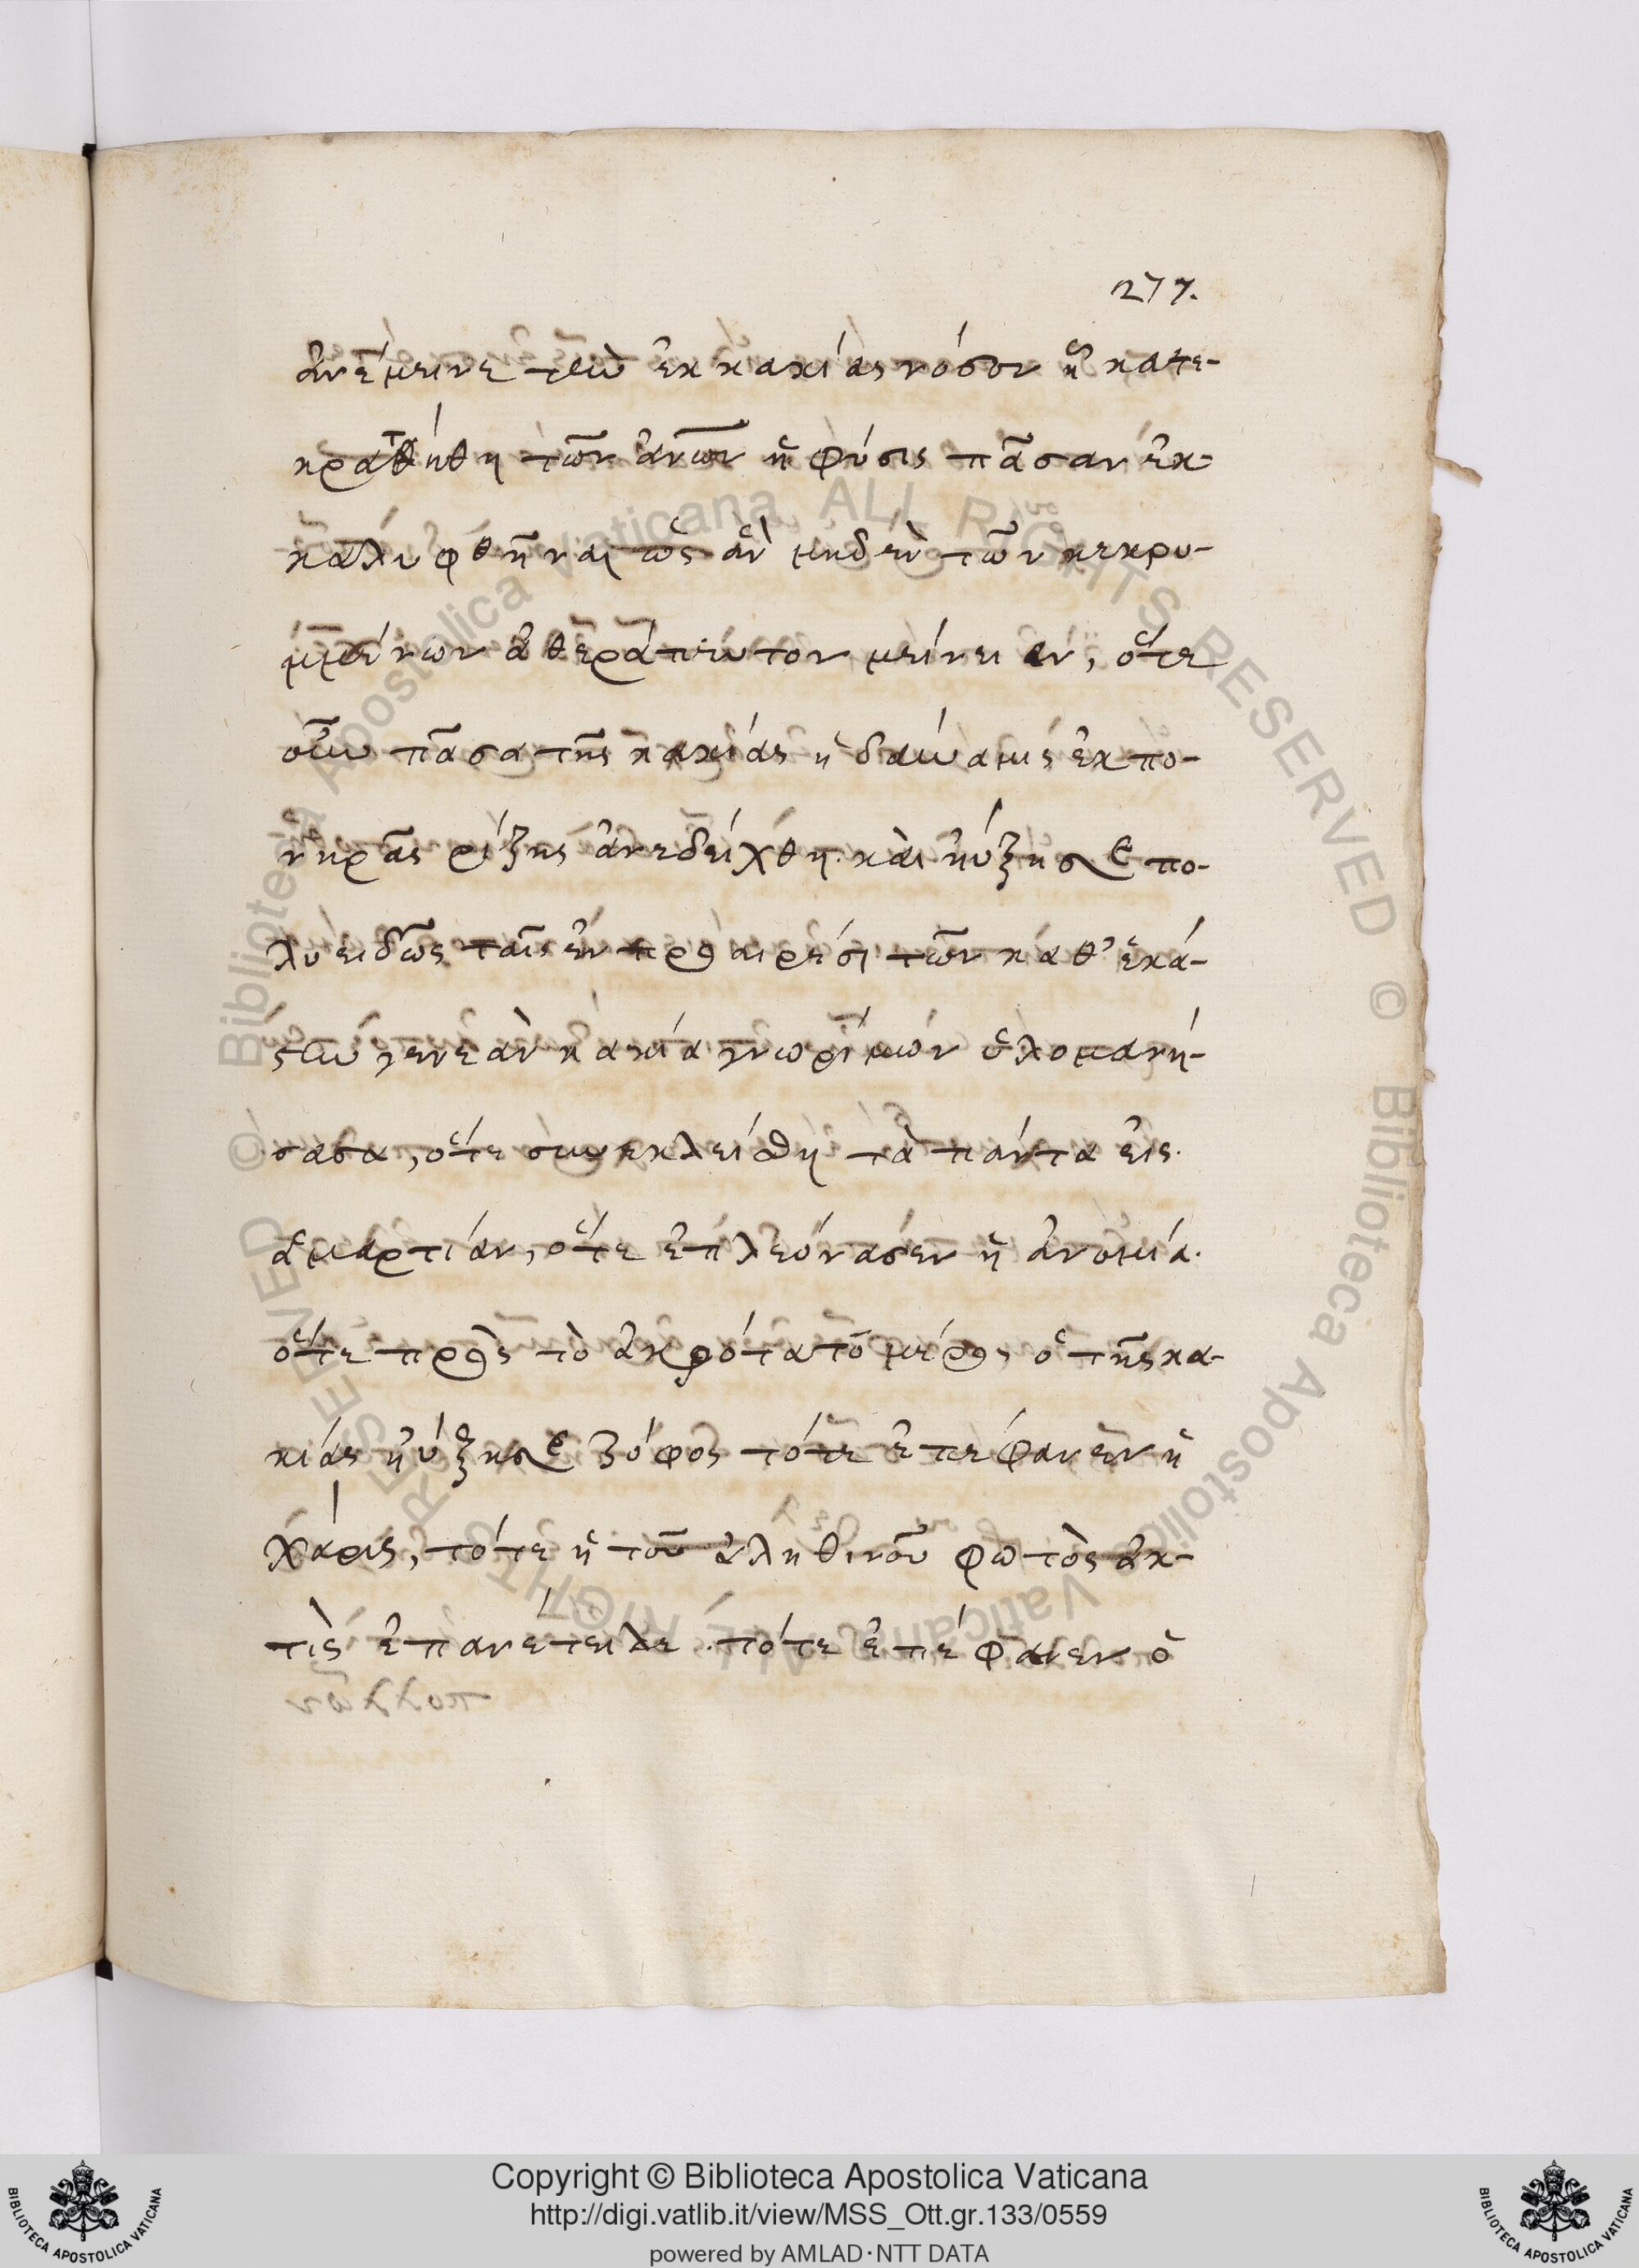 277.
ἀνέμεινε τὴν ἐκ κακίας νόσον ἣ κατε-
κρατήθη τῶν ἀνων ἡ φύσις πᾶσαν ἐκ-
καλυφθῆναι ὡς ἂν μηδὲν τῶν κεκρυ-
μμένων ἀθεράπευτον μείνειεν, ὅτε
οὖν πᾶσα τῆς κακίας ἡ δύναμις ἐκ πο-
νηρᾶς ῥίζης ἀνεδείχθη. καὶ ηὔξησε πο-
λυειδῶς ταῖς ἐν προαιρέσι τῶν καθ' ἑκά-
στην γενεὰν κακία γνωρίμων ὑλομανή-
σασα, ὅτε συνεκλείσθη τὰ πάντα εἰς
ἁμαρτίαν, ὅτε ἐπλεόνασεν ἡ ἀνομία.
ὅτε πρὸς τὸ ἀκρότατο μέρος ὁ τῆς κα-
κίας ηὔξησε ζόφος τότε ἐπεφάνεν ἡ
χάρις, τότε ἡ τοῦ ἀληθινοῦ φωτὸς ἀκ-
τὶς ἐπανέτειλε. τότε ἐπέφανεν ὁ
Copyright © Biblioteca Apostolica Vaticana
http://digi.vatlib.it/view/MSS_Ott.gr.133/0559
powered by AMLAD·NTT DATA
BIBLIOTECA APOSTOLICA VATICANA
BIBLIOTECA APOSTOLICA VATICANA
© Biblioteca Apostolica Vaticana ALL RIGHTS RESERVED © Biblioteca Apostolica Vaticana ALL RIGHTS RESERVED